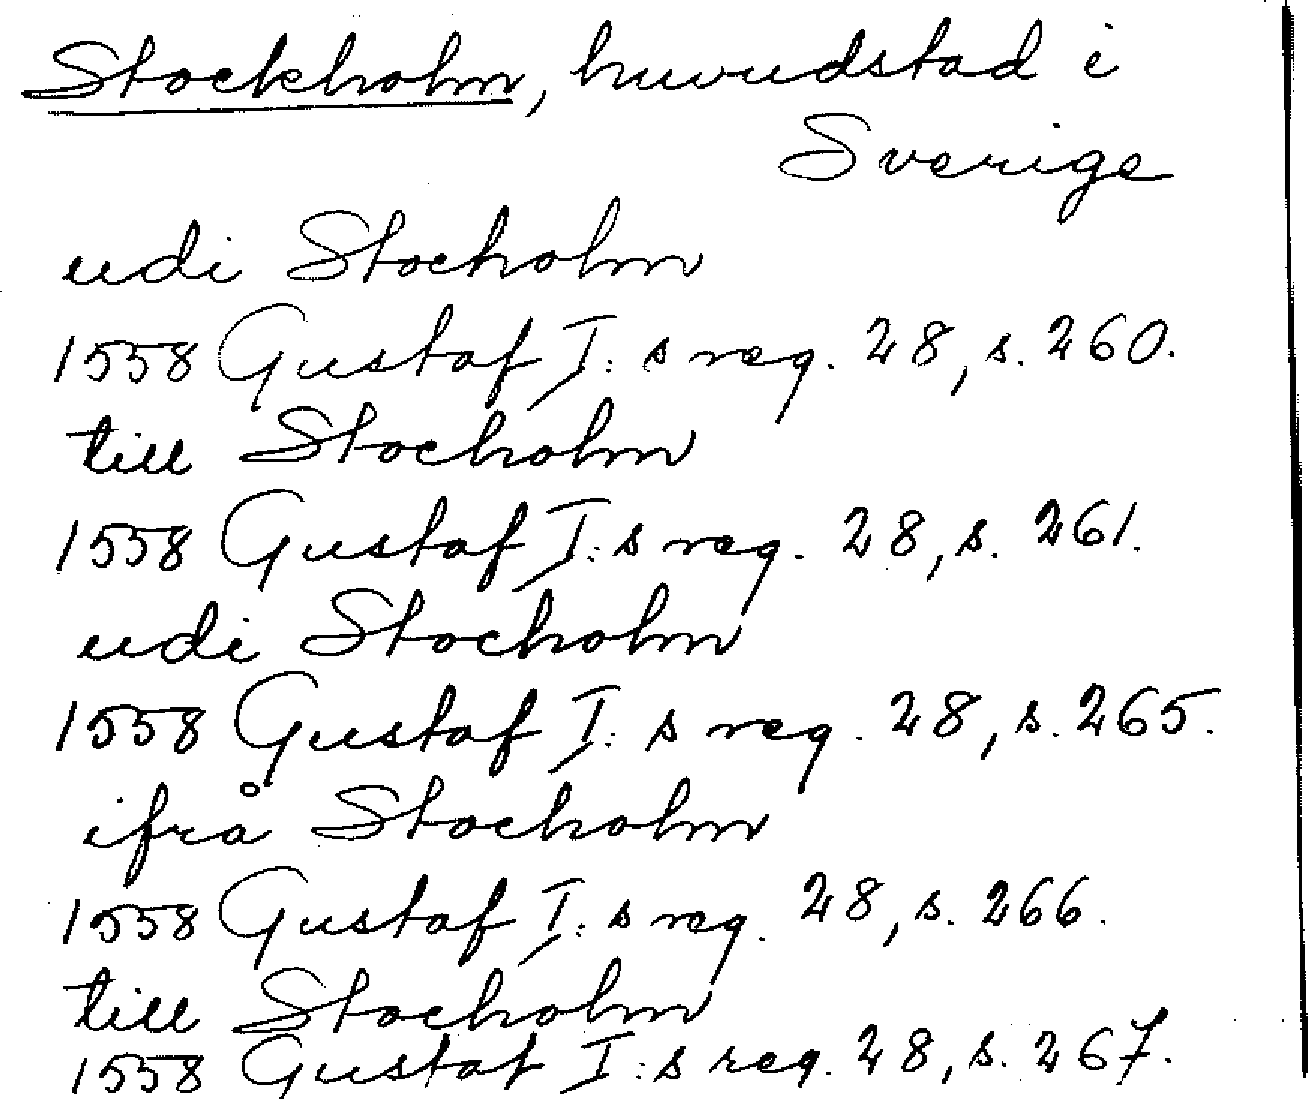 Stockholm, huvudstad i
Sverige
udi Stocholm
1558 Gustaf I:s reg. 28, s. 260.
till Stocholm
1558 Gustaf I:s reg. 28, s. 261.
udi Stocholm
1558 Gustaf I:s reg. 28, s. 265.
ifrå Stocholm
1558 Gustaf I:s reg. 28, s. 266.
till Stocholm
1558 Gustaf I:s reg. 28, s. 267.